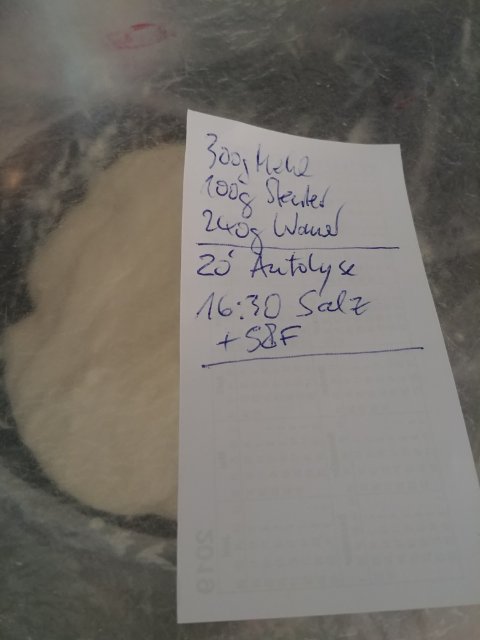 300g Mehl
100g Starter
240g Wasser
20' Autolyse
16:30 Salz
+ S&F
2019